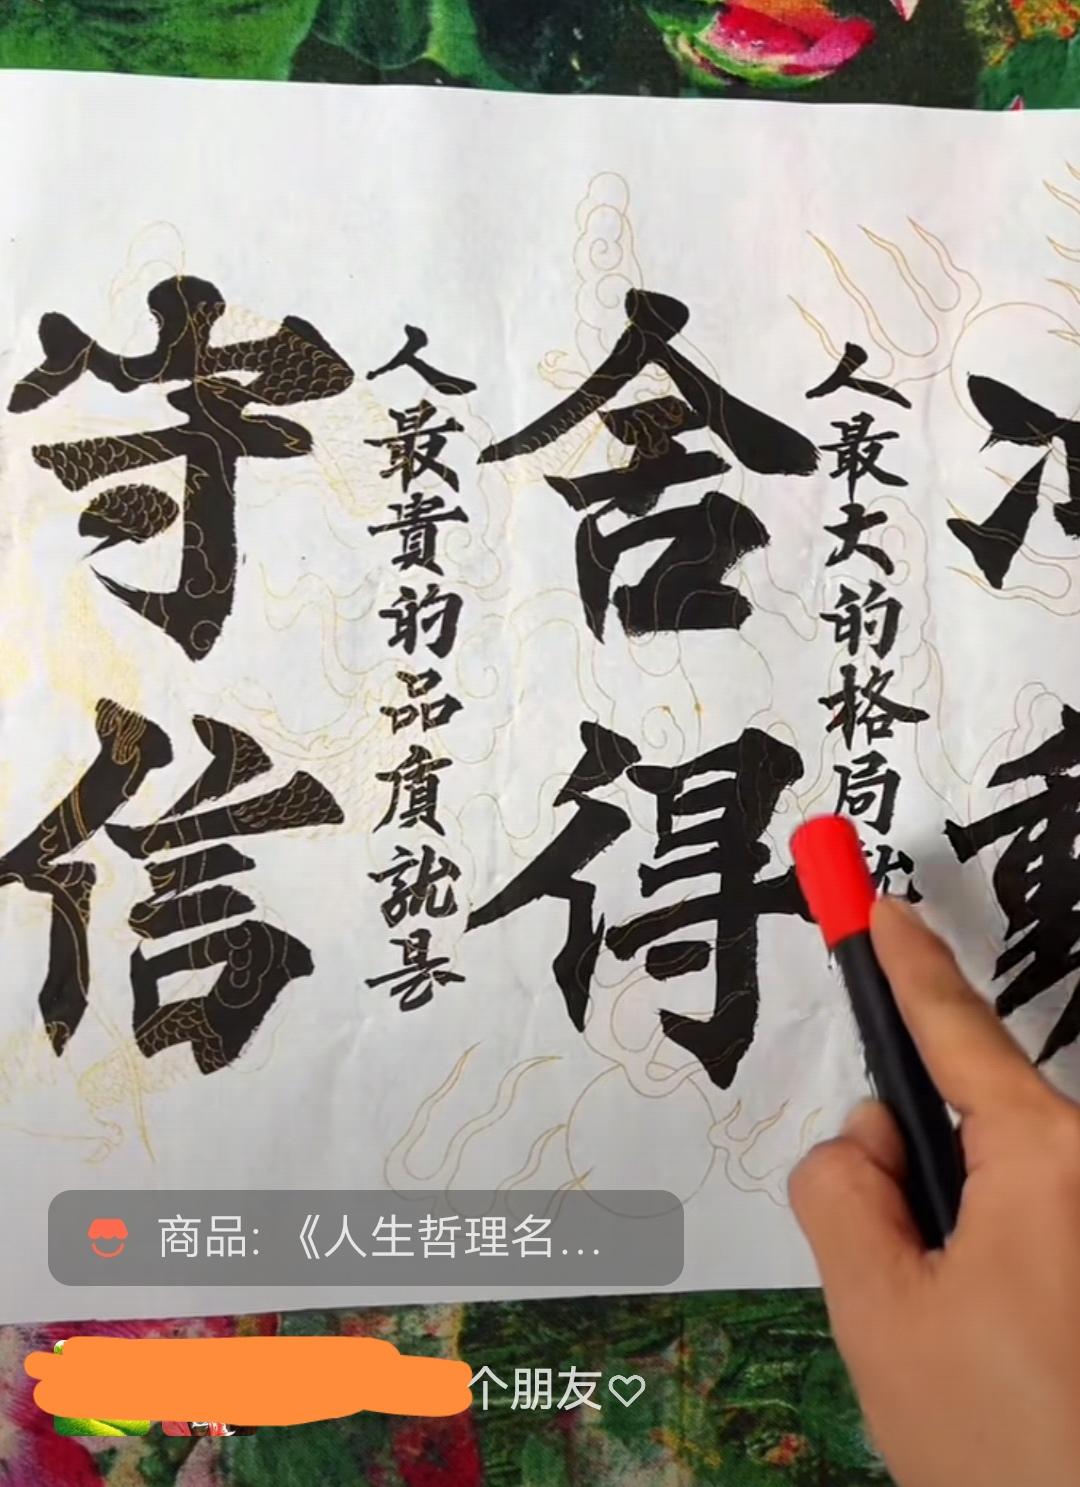 人最大的格局就
舍得
人最貴的品质就是
守信
商品: 《人生哲理名...
个朋友♡